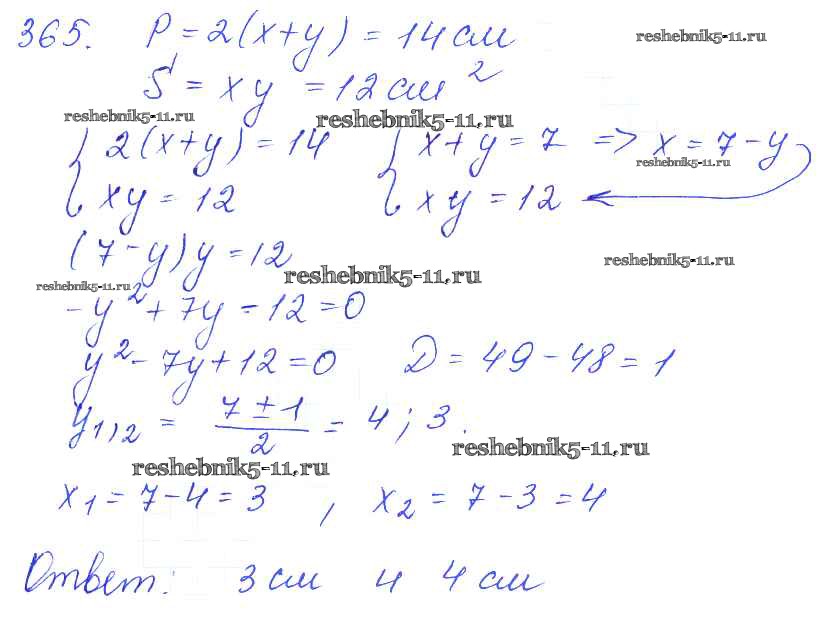 365. P = 2(x+y) = 14 см
reshebnik5-11.ru
S = xy = 12 см²
reshebnik5-11.ru reshebnik5-11.ru
{ 2(x+y) = 14 { x+y = 7 => x = 7-y
reshebnik5-11.ru
xy = 12 xy = 12
(7-y)y = 12
reshebnik5-11.ru reshebnik5-11.ru
reshebnik5-11.ru
-y² + 7y - 12 = 0
y² - 7y + 12 = 0 D = 49 - 48 = 1
y1,2 = (7 ± 1)/2 = 4; 3.
reshebnik5-11.ru
reshebnik5-11.ru
x1 = 7-4 = 3, x2 = 7-3 = 4
Ответ: 3 см и 4 см